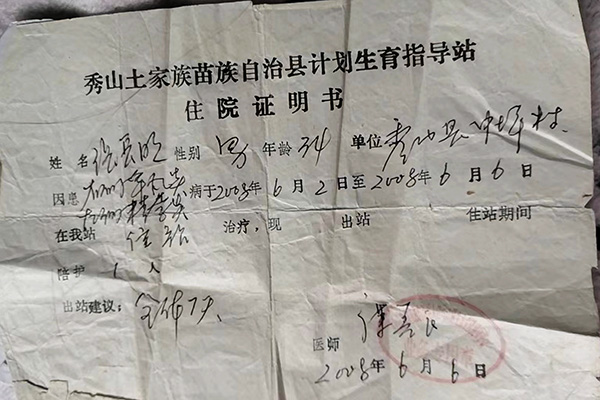 秀山土家族苗族自治县计划生育指导站
住院证明书
姓名 张云明 性别 男 年龄 34 单位 秀山县 坪村.
因患 右侧 炎 病于2008年6月2日至2008年6月6日
左侧精索炎
在我站 住站 治疗，现 出站 住站期间
陪护 1 人
出站建议： 全休7天
医师
2008年6月6日